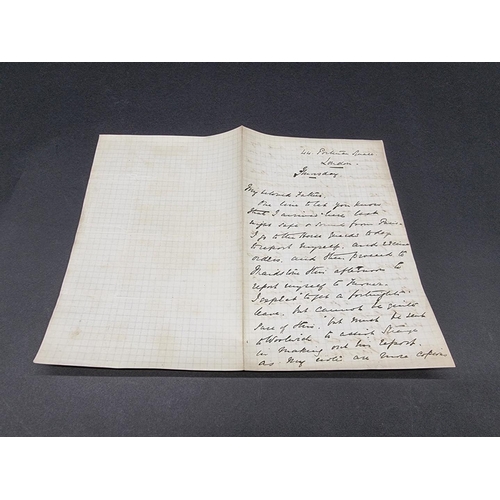 44. Porchester
London.
Thursday
My beloved Father,
One line to let you know
that I arrived here last
night safe & sound from
I go to the Horse Guards today
to report myself, and receive
orders, and then proceed to
Maidstone this afternoon to
report myself to
I expect to get a fortnight's
leave, but cannot be quite
sure of this, but must be sent
to Woolwich to assist
in making out his Report
as my notes are more copious